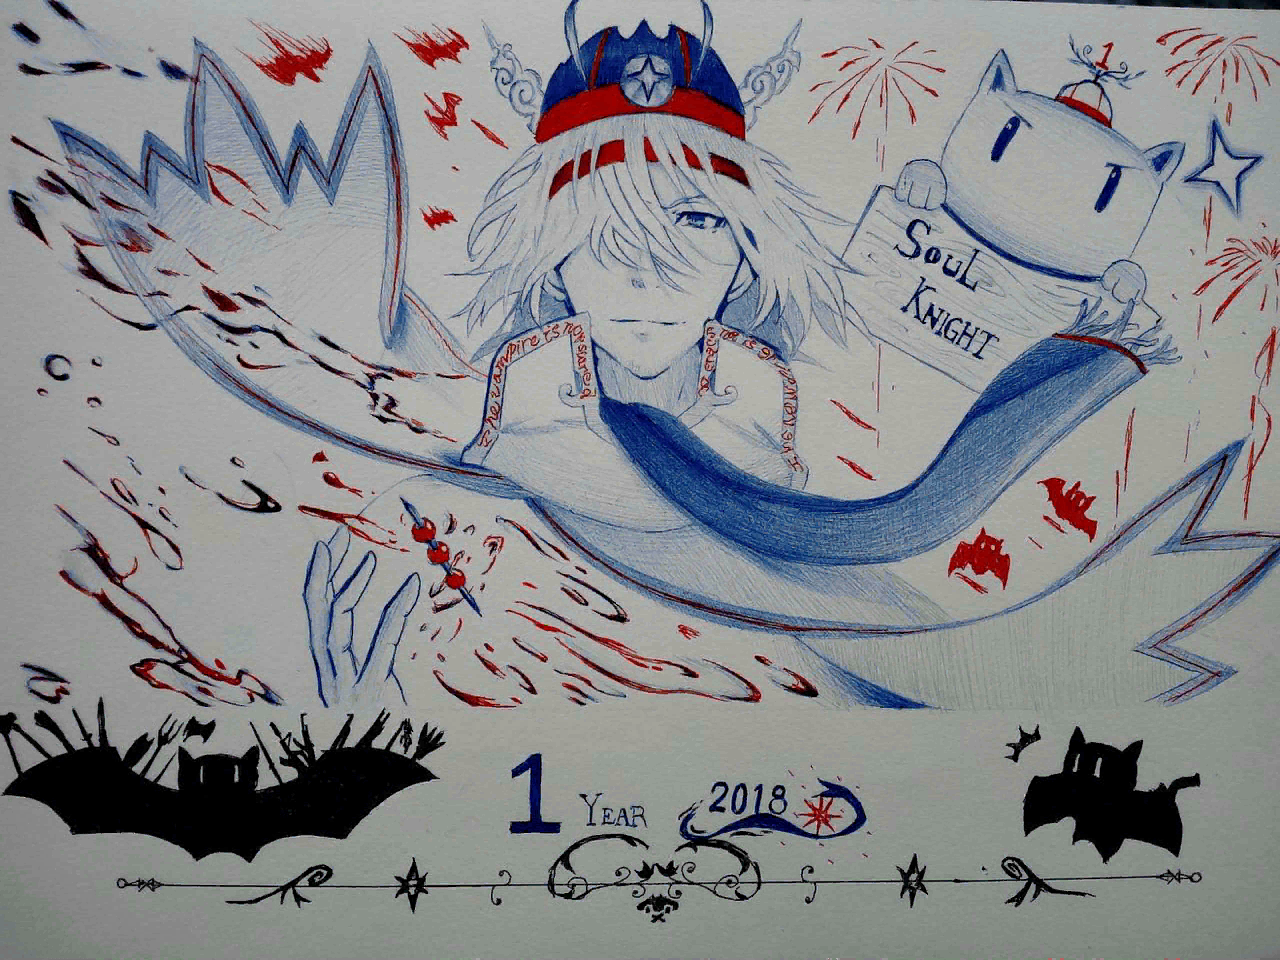 1
Soul
Knight
The vampire is no
1
Year
2018